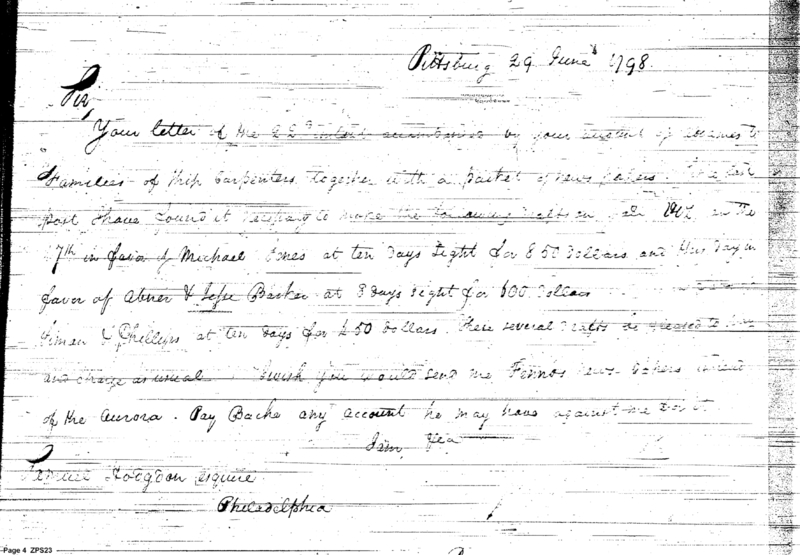 Pittsburg 29 June 1798.
Sir,
Your letter of the 22d by your of to
Families of Ship Carpenters together with a packet of news papers. The last
post I have found it necessary to make the following drafts on the
7th in favor of Michael at ten days sight for 850 Dollars and this day in
favor of Abner & Jesse Barker at 3 days sight for 600 Dollars
& Phillips at ten days for 250 Dollars. These several drafts be pleased to
and charge as usual I wish you would send me Fennos news papers instead
of the Aurora. Pay Bache any account he may have against me for it
I am
Hodgdon esquire
Philadelphia
Page 4 ZPS23